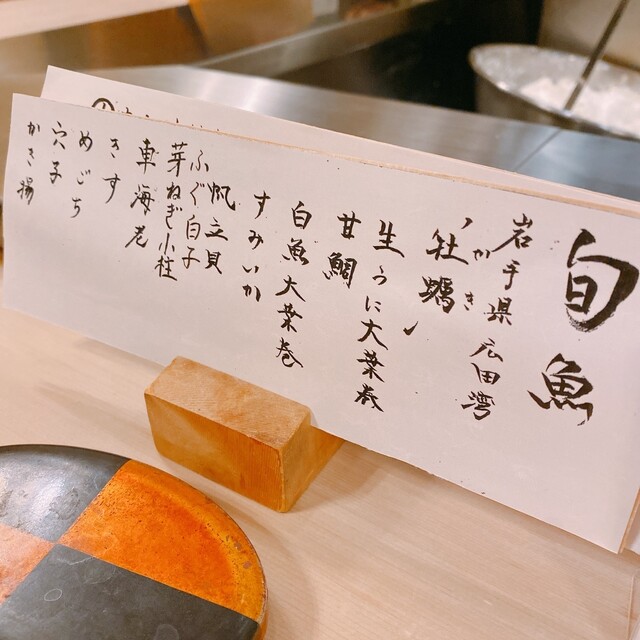 旬魚
岩手県広田湾
かき
牡蠣
生うに大葉巻
甘鯛
白魚大葉巻
すみいか
帆立貝
ふぐ白子
芽ねぎ小柱
車海老
きす
めごち
穴子
かき揚